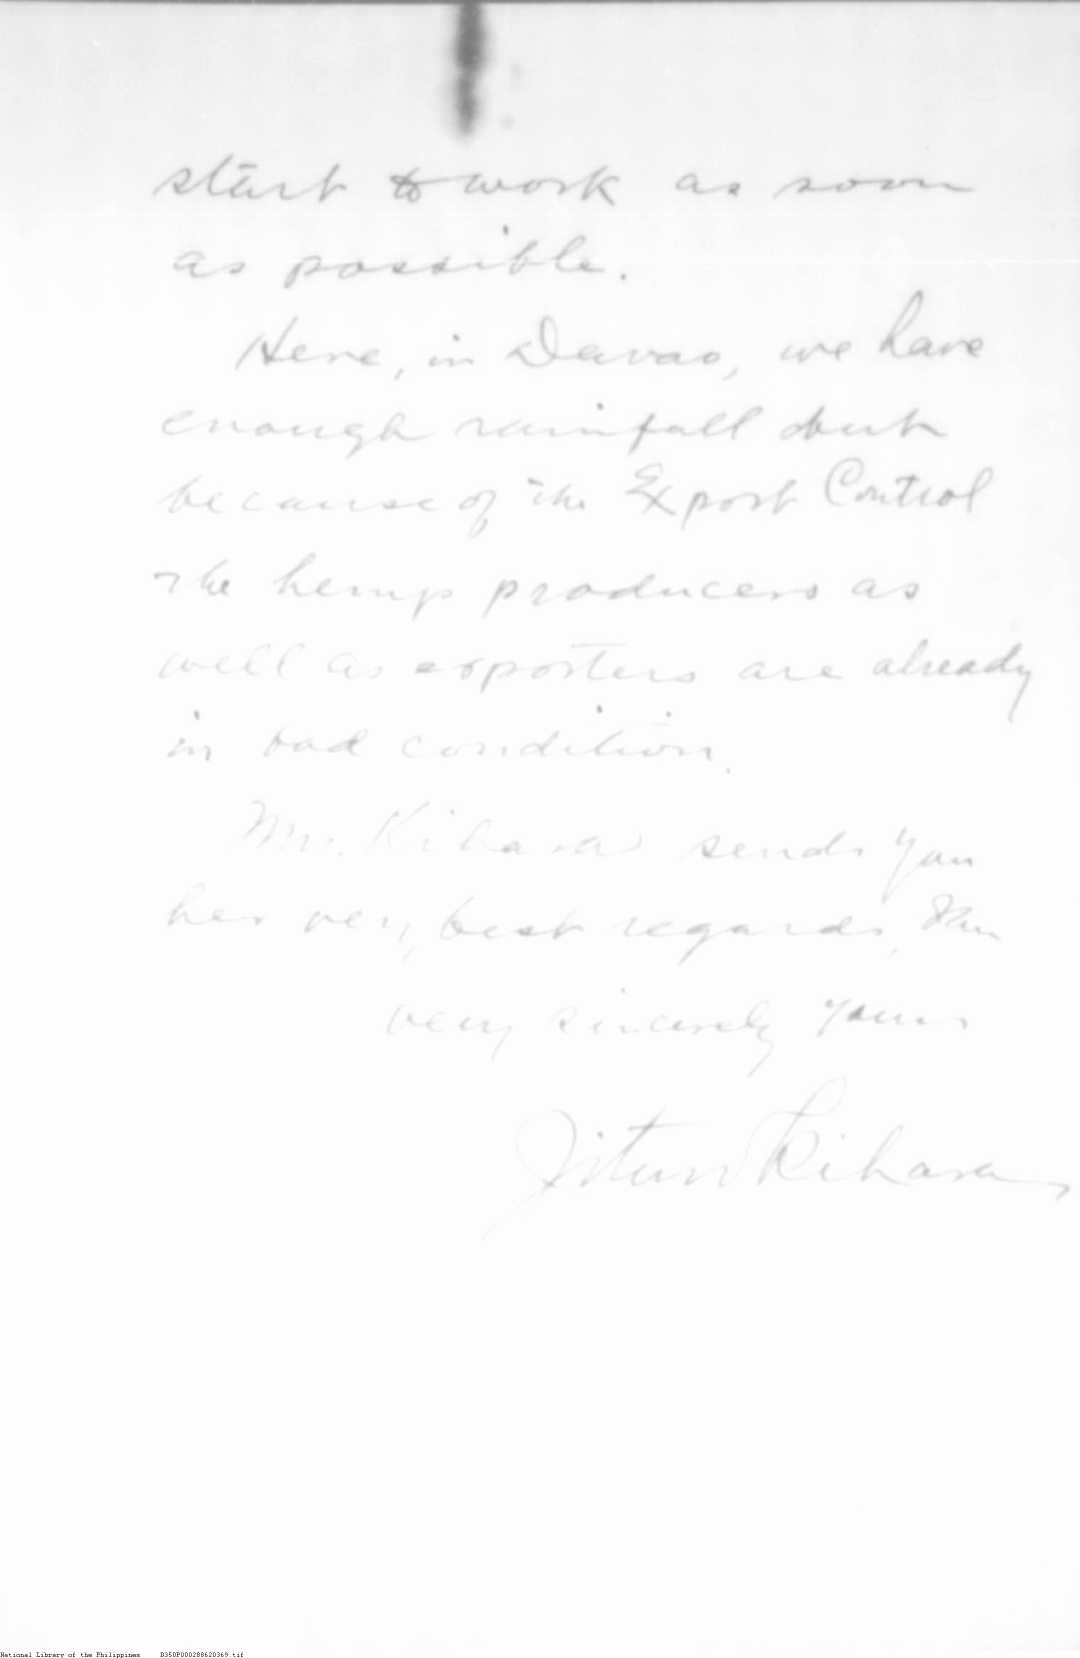 start to work as soon
as possible.
Here, in Davao, we have
enough rainfall but
because of the Export Control
the hemp producers as
well as exporters are already
in bad condition.
Mrs. Kihara sends you
her very best regards,
very sincerely yours
Jitun Kihara
National Library of the Philippines D350P000288620369.tif